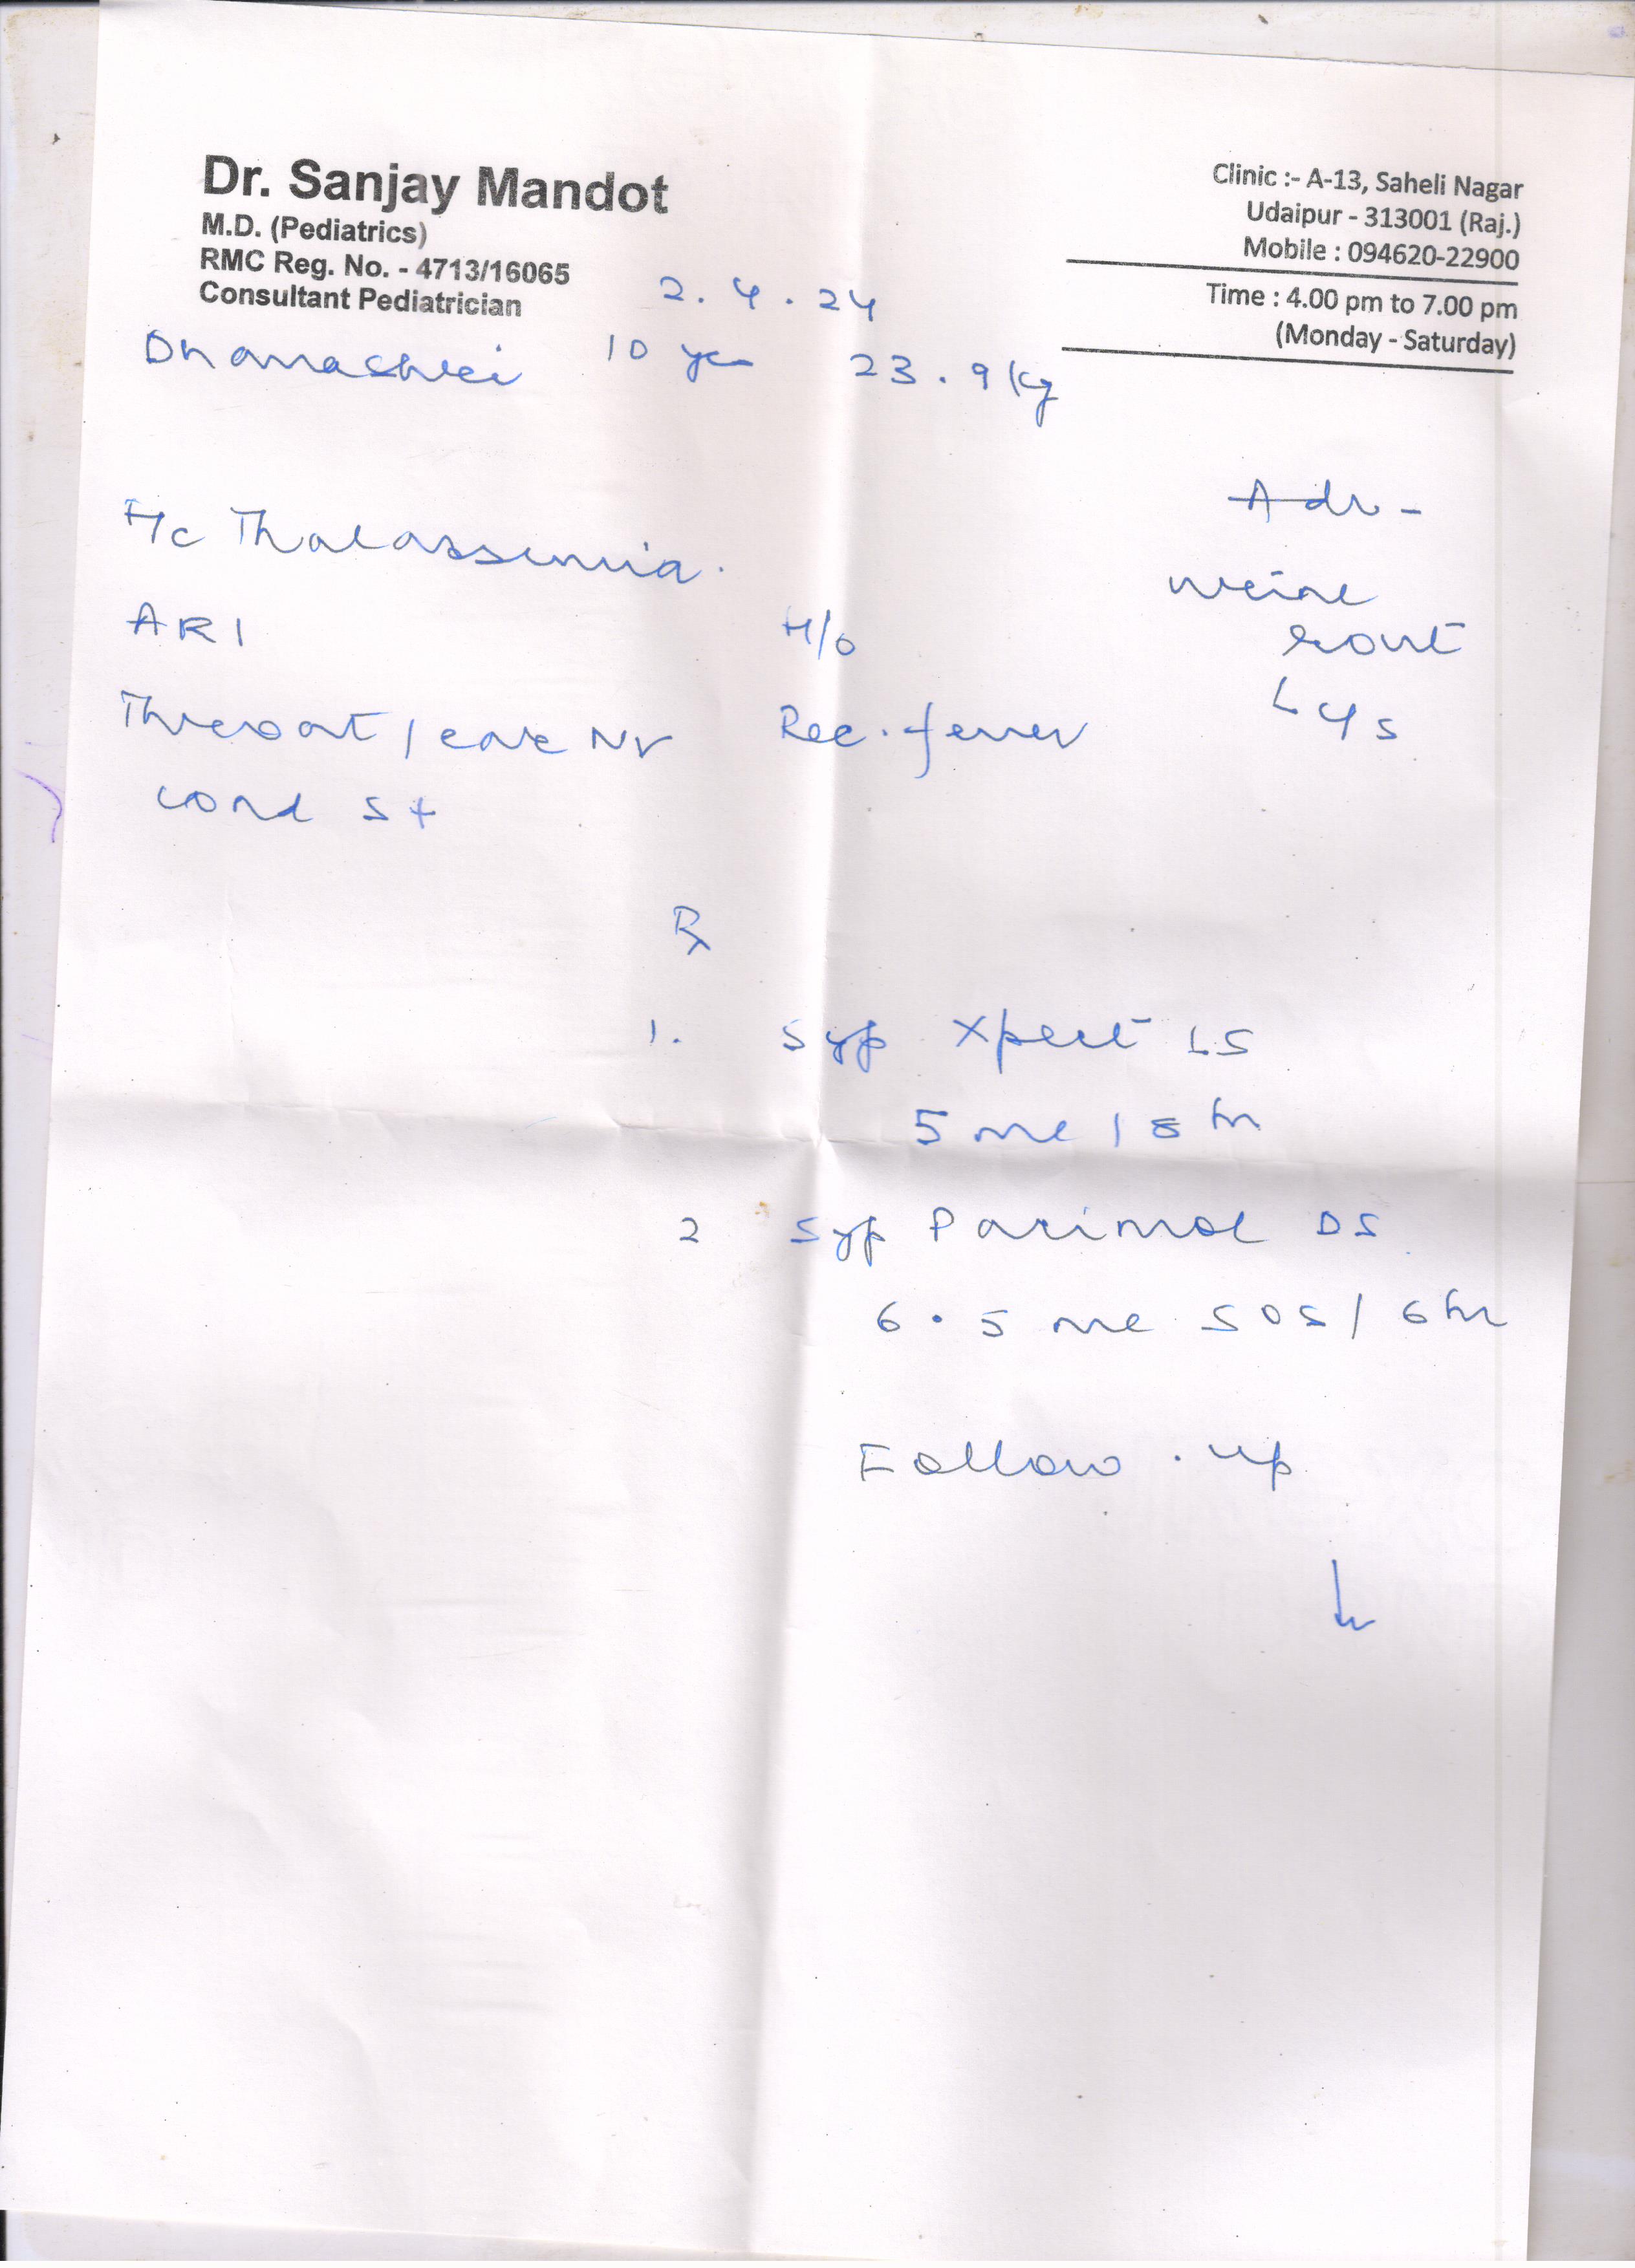 Dr. Sanjay Mandot
M.D. (Pediatrics)
RMC Reg. No. - 4713/16065
Consultant Pediatrician
Clinic :- A-13, Saheli Nagar
Udaipur - 313001 (Raj.)
Mobile : 094620-22900
Time : 4.00 pm to 7.00 pm
(Monday - Saturday)
2.4.24
10 23.9 kg
Thalassemia.
ARI
H/o
Throat / ear
Rec. fever
cond st
Adv -
urine
rout
℞
1. Syp Xpect LS
5 ml / 8 hr
2 Syp Parimol DS
6.5 ml SOS / 6 hr
Follow.up